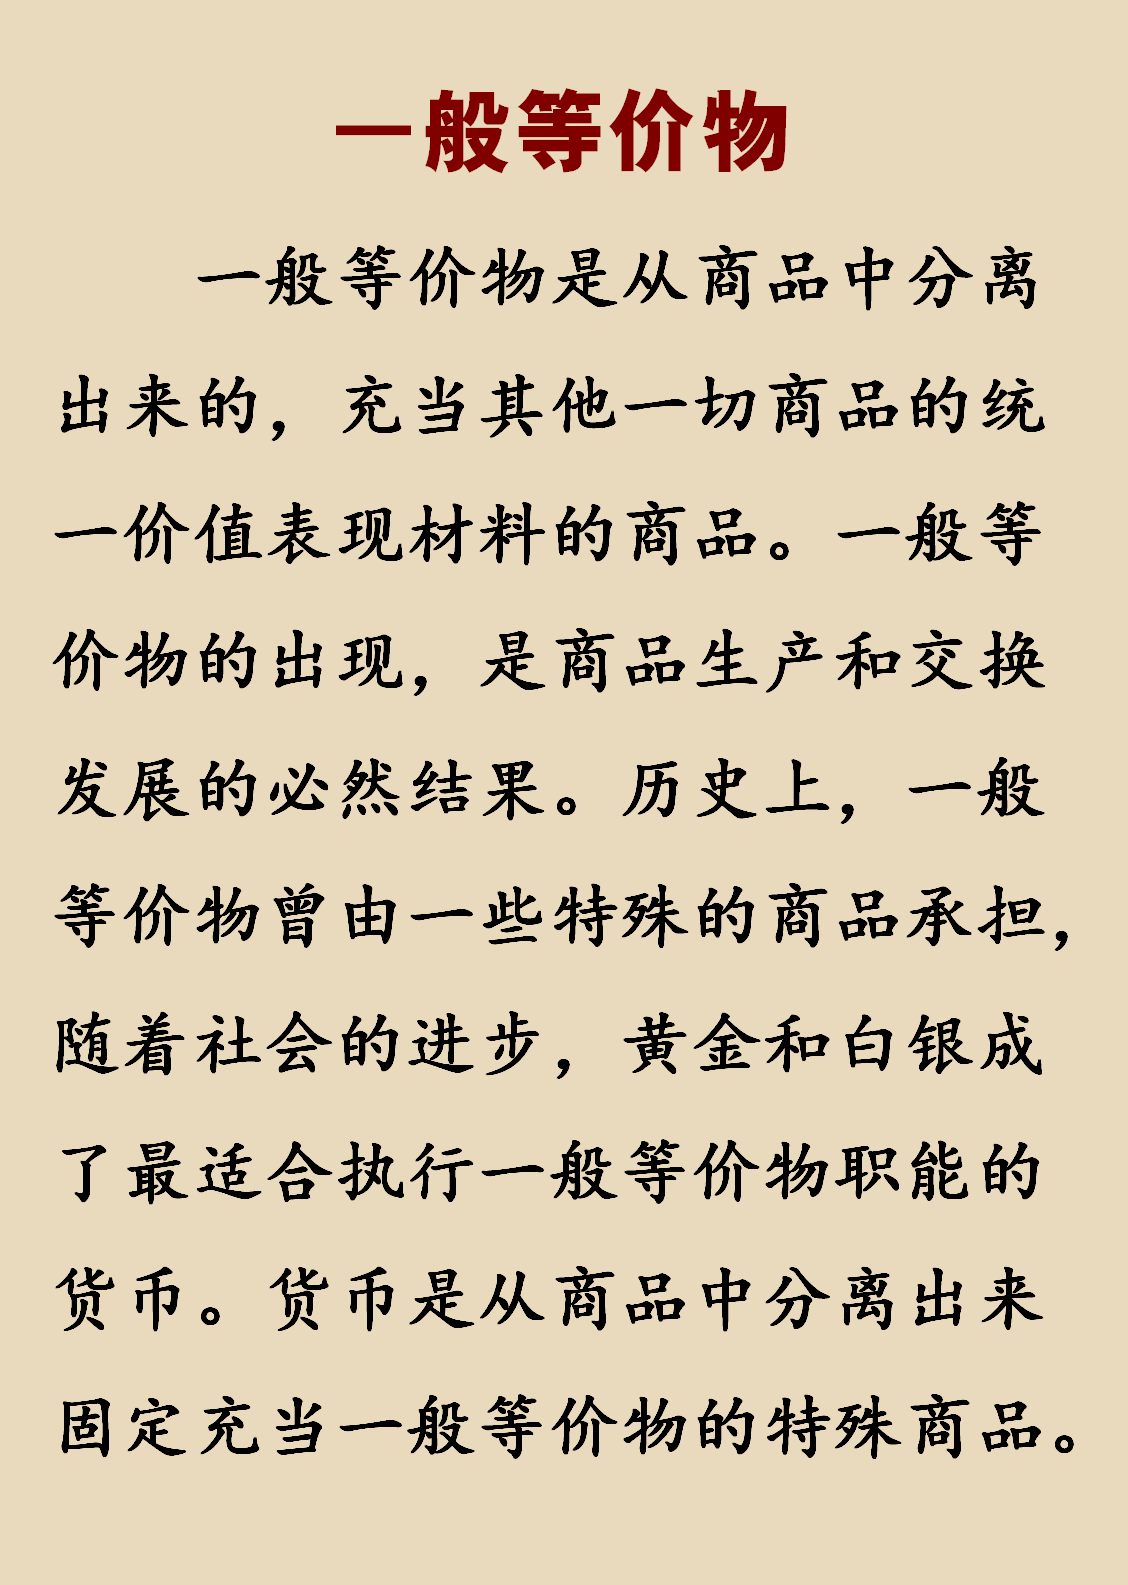 一般等价物
一般等价物是从商品中分离
出来的，充当其他一切商品的统
一价值表现材料的商品。一般等
价物的出现，是商品生产和交换
发展的必然结果。历史上，一般
等价物曾由一些特殊的商品承担，
随着社会的进步，黄金和白银成
了最适合执行一般等价物职能的
货币。货币是从商品中分离出来
固定充当一般等价物的特殊商品。